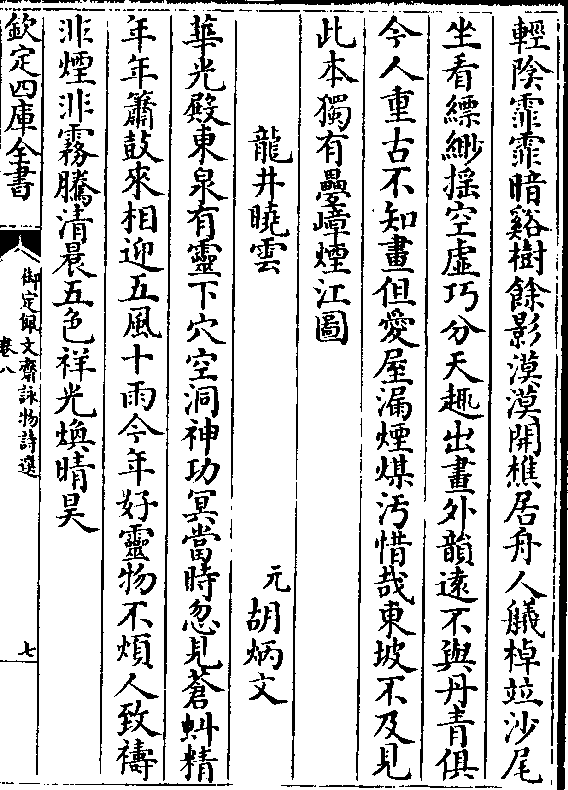 輕陰霏霏暗谿樹餘影漠漠開樵居舟人艤棹竝沙尾
坐看縹緲揺空虛巧分天趣出畫外韻遠不與丹青俱
今人重古不知畫但愛屋漏煙煤汚惜哉東坡不及見
此本獨有疊嶂煙江圖
龍井曉雲
元胡炳文
華光殿東泉有靈下穴空洞神功冥當時忽見蒼虯精
年年簫鼓來相迎五風十雨今年好靈物不煩人致禱
非煙非霧騰清晨五色祥光煥晴昊
欽定四庫全書
御定佩文齋詠物詩選
卷八
七